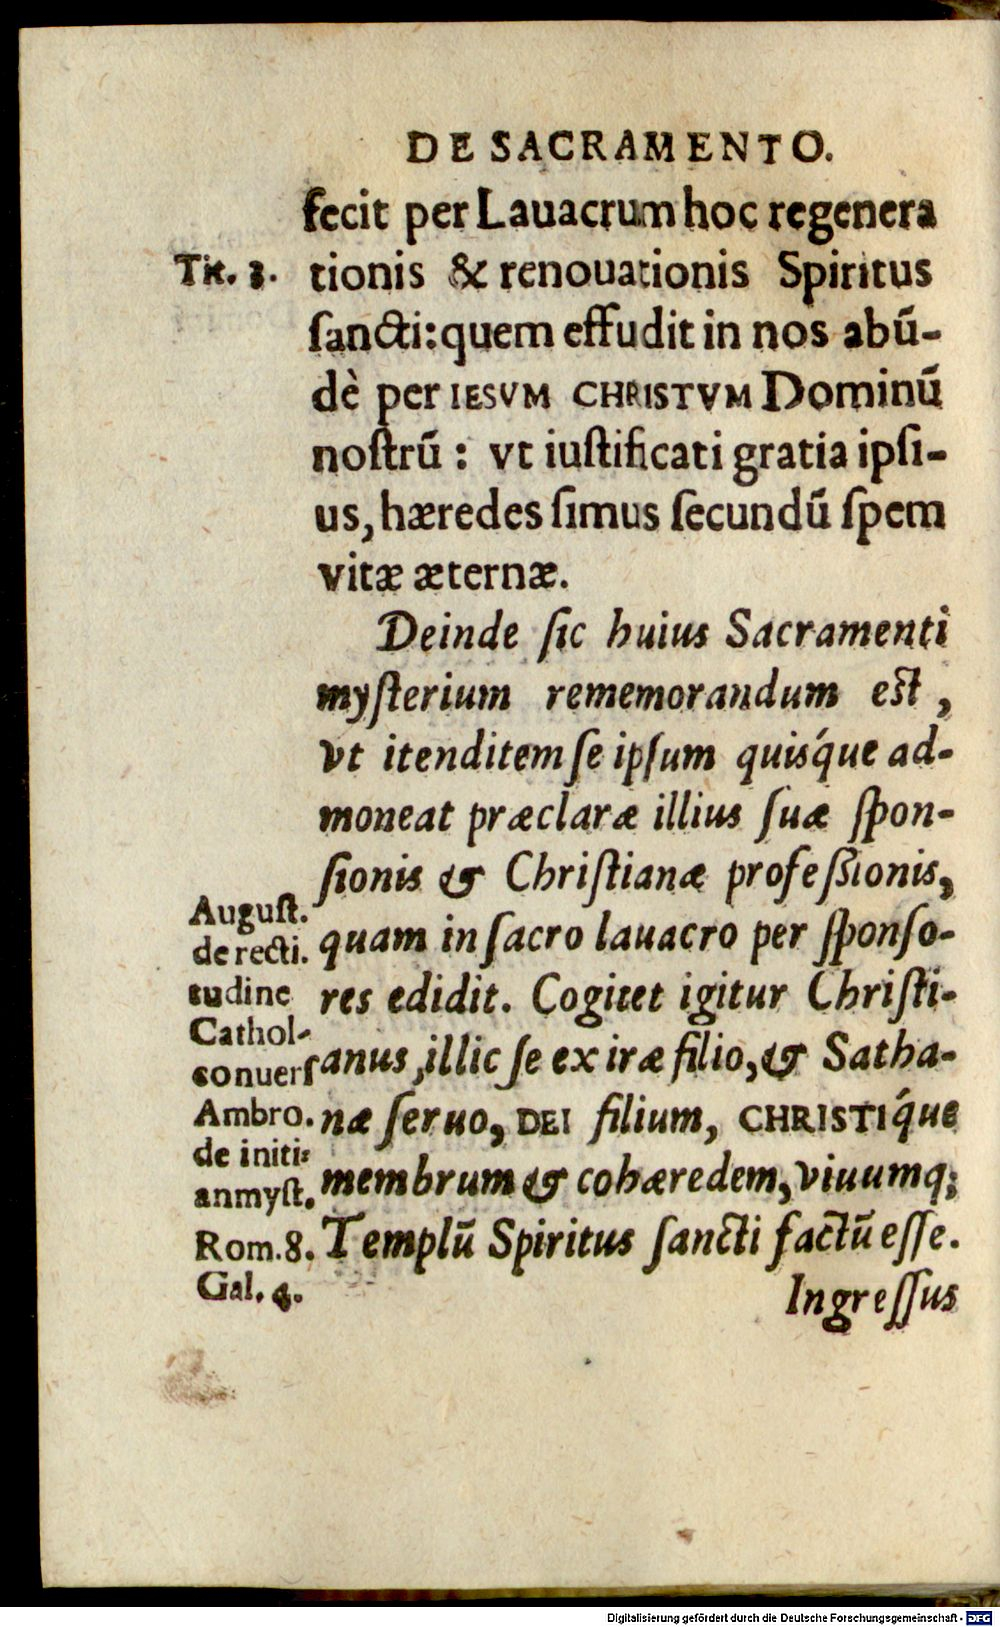 DE SACRAMENTO.
fecit per Lauacrum hoc regenera
Tit. 3.
tionis & renouationis Spiritus
ſancti: quem effudit in nos abū-
dè per IESVM CHRISTVM Dominū
noſtrū : vt iuſtificati gratia ipſi-
us, hæredes ſimus ſecundū ſpem
vitæ æternæ.
Deinde ſic huius Sacramenti
myſterium rememorandum eſt ,
vt itenditem ſe ipſum quiſq́ue ad-
moneat præclaræ illius ſuæ ſpon-
ſionis & Chriſtianæ profeſsionis,
quam in ſacro lauacro per ſponſo-
res edidit. Cogitet igitur Chriſti-
anus, illic ſe ex iræ filio, & Satha-
næ ſeruo, DEI filium, CHRISTIq́ue
membrum & cohæredem, viuumq;
Templū Spiritus ſancti factū eſſe.
Auguſt.
de recti.
tudine
Cathol-
conuerſ
Ambro.
de initi-
anmyſt.
Rom. 8.
Gal. 4.
Ingreſſus
Digitalisierung gefördert durch die Deutsche Forschungsgemeinschaft - DFG